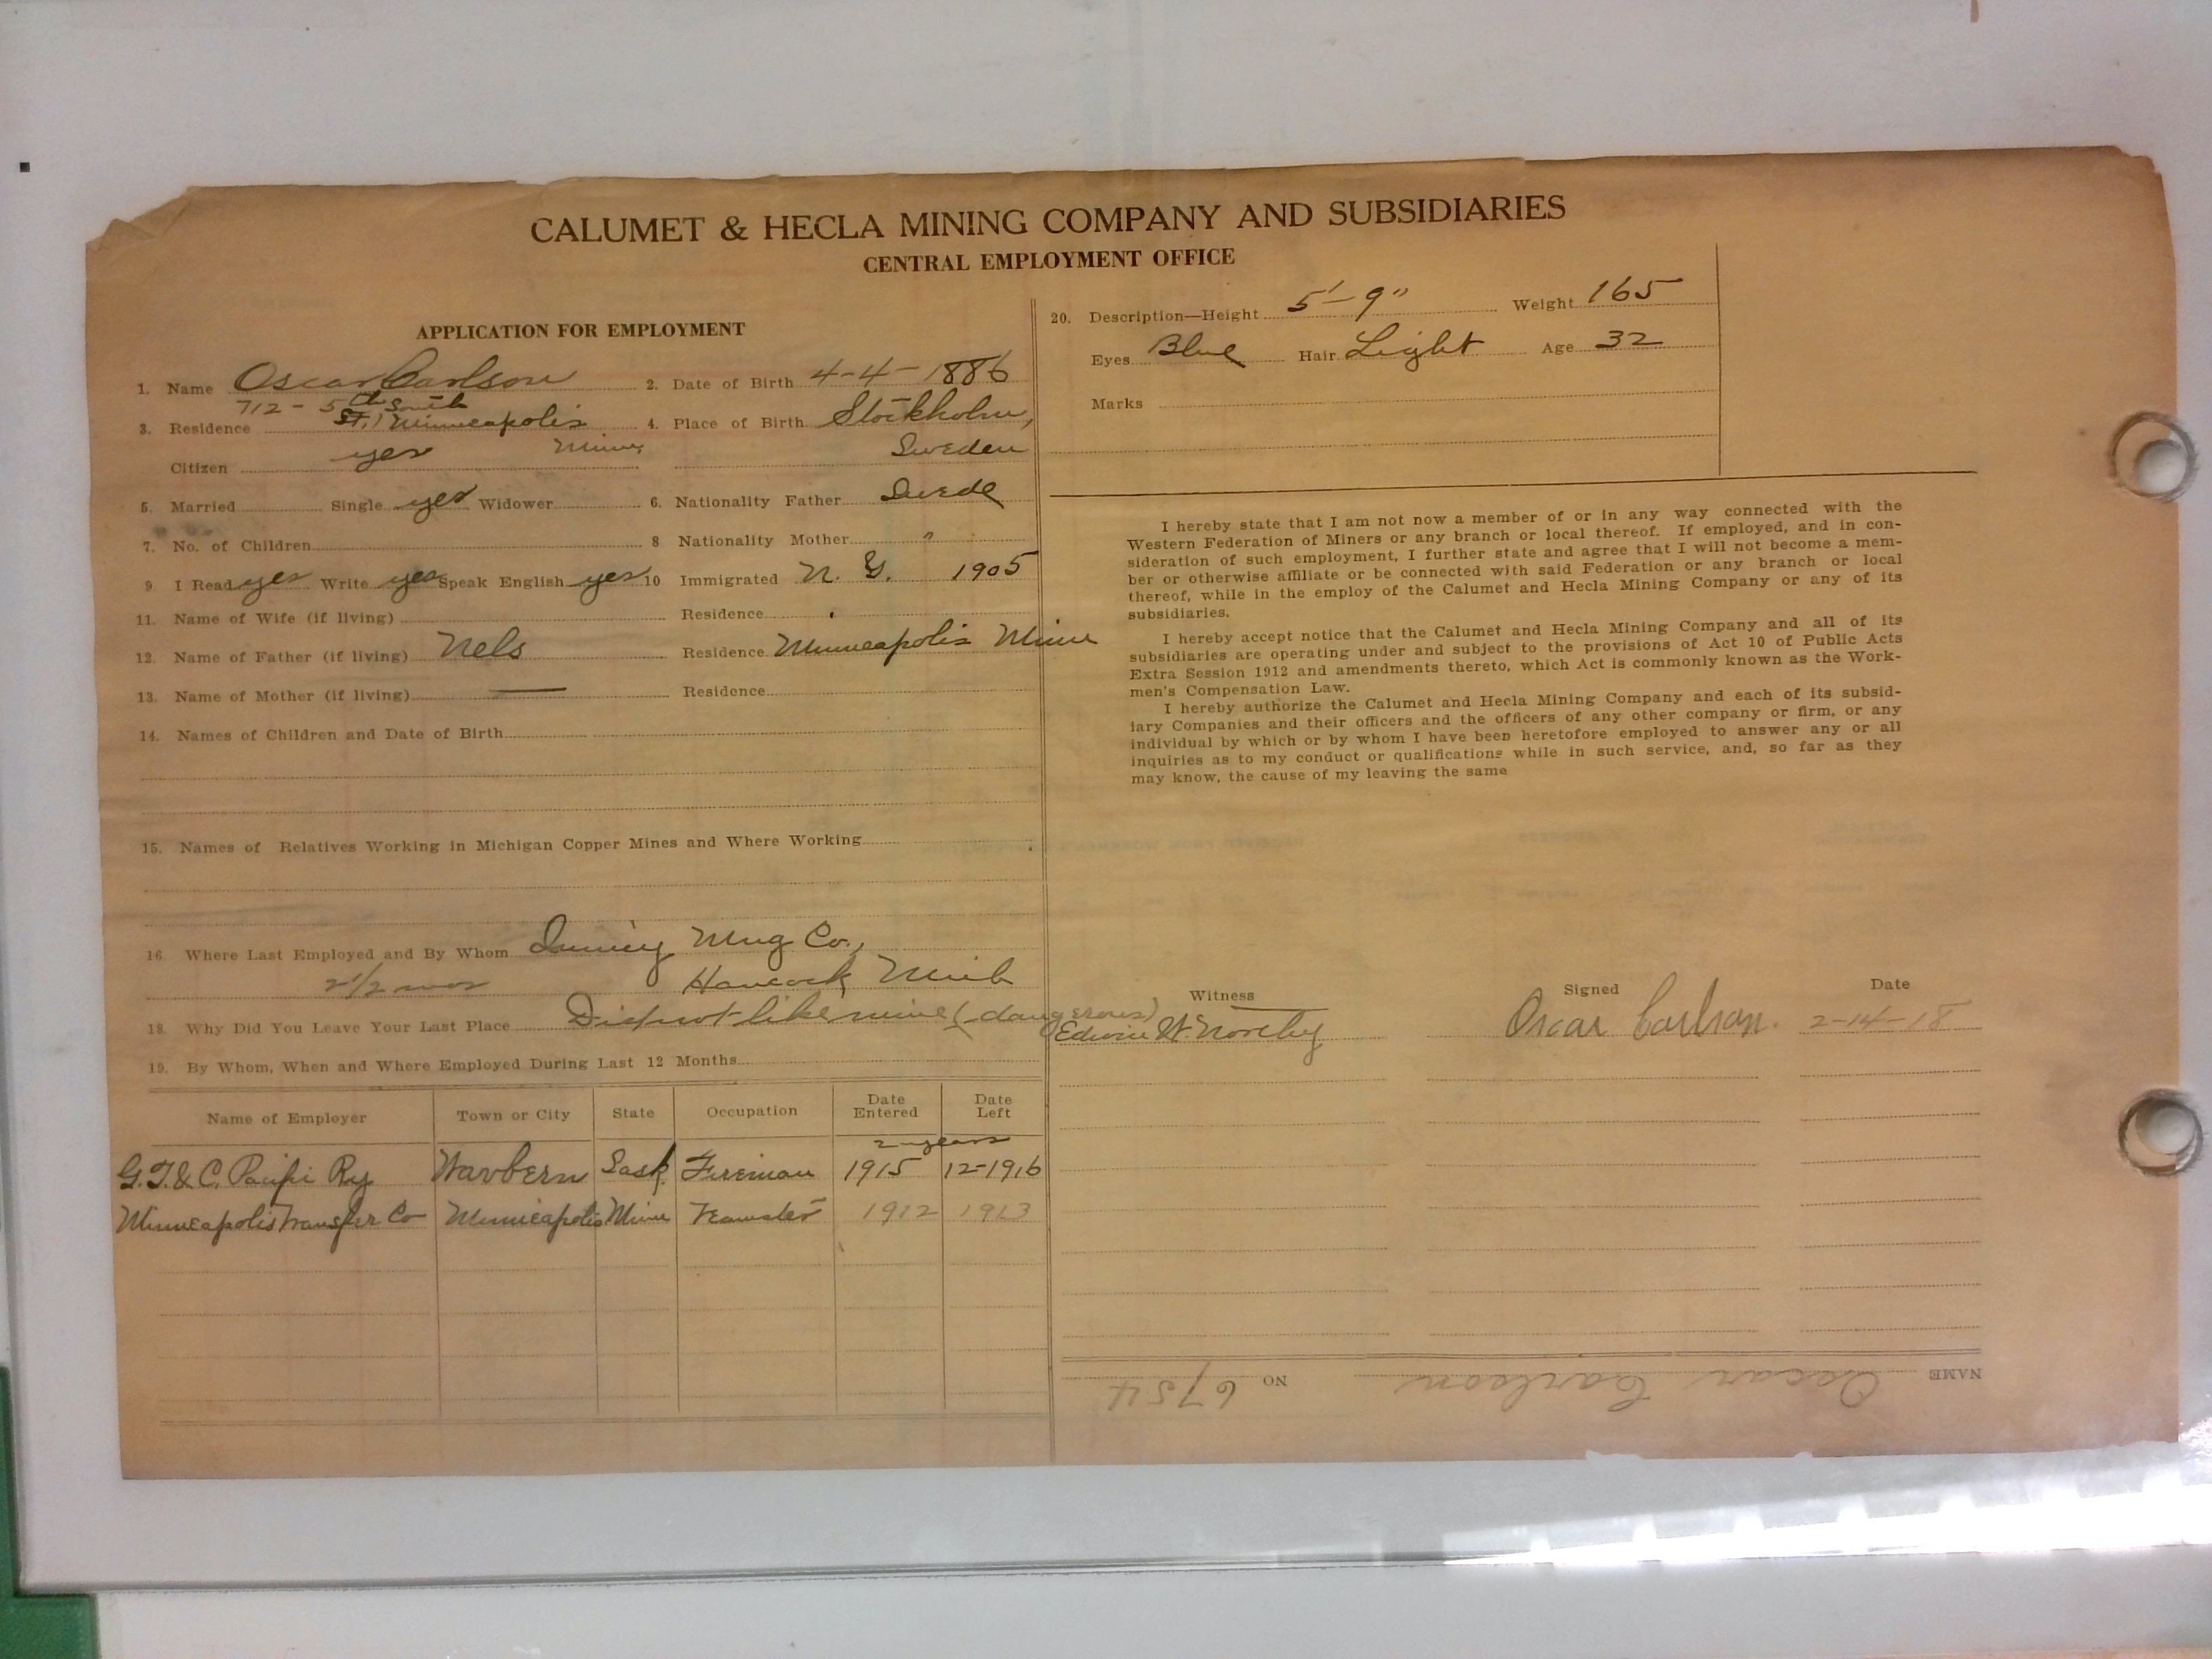 CALUMET & HECLA MINING COMPANY AND SUBSIDIARIES
CENTRAL EMPLOYMENT OFFICE
APPLICATION FOR EMPLOYMENT
1. Name Oscar Carlson 2. Date of Birth 4-4-1886
712 - 5th South
3. Residence St., Minneapolis 4. Place of Birth Stockholm,
Minn
Citizen yes Sweden
5. Married Single yes Widower 6. Nationality Father Swede
7. No. of Children 8 Nationality Mother "
9 I Read yes Write yes Speak English yes 10 Immigrated N. Y. 1905
11. Name of Wife (if living) Residence
12. Name of Father (if living) Nels Residence Minneapolis Minn
13. Name of Mother (if living) — Residence
14. Names of Children and Date of Birth
15. Names of Relatives Working in Michigan Copper Mines and Where Working
16. Where Last Employed and By Whom Quincy Mng Co.,
2 1/2 mos Hancock Mich
18. Why Did You Leave Your Last Place Did not like mine (dangerous)
19. By Whom, When and Where Employed During Last 12 Months
Name of Employer Town or City State Occupation Date Entered Date Left
2 years
G.T. & C. Pacifi Ry Wavbern Sask. Fireman 1915 12-1916
Minneapolis Transfer Co Minneapolis Minn Teamster 1912 1913
20. Description—Height 5'-9" Weight 165
Eyes Blue Hair Light Age 32
Marks
I hereby state that I am not now a member of or in any way connected with the
Western Federation of Miners or any branch or local thereof. If employed, and in con-
sideration of such employment, I further state and agree that I will not become a mem-
ber or otherwise affiliate or be connected with said Federation or any branch or local
thereof, while in the employ of the Calumet and Hecla Mining Company or any of its
subsidiaries.
I hereby accept notice that the Calumet and Hecla Mining Company and all of its
subsidiaries are operating under and subject to the provisions of Act 10 of Public Acts
Extra Session 1912 and amendments thereto, which Act is commonly known as the Work-
men's Compensation Law.
I hereby authorize the Calumet and Hecla Mining Company and each of its subsid-
iary Companies and their officers and the officers of any other company or firm, or any
individual by which or by whom I have been heretofore employed to answer any or all
inquiries as to my conduct or qualifications while in such service, and, so far as they
may know, the cause of my leaving the same
Witness Signed Date
Edwin W. Oscar Carlson. 2-14-18
NAME Oscar Carlson NO 6754